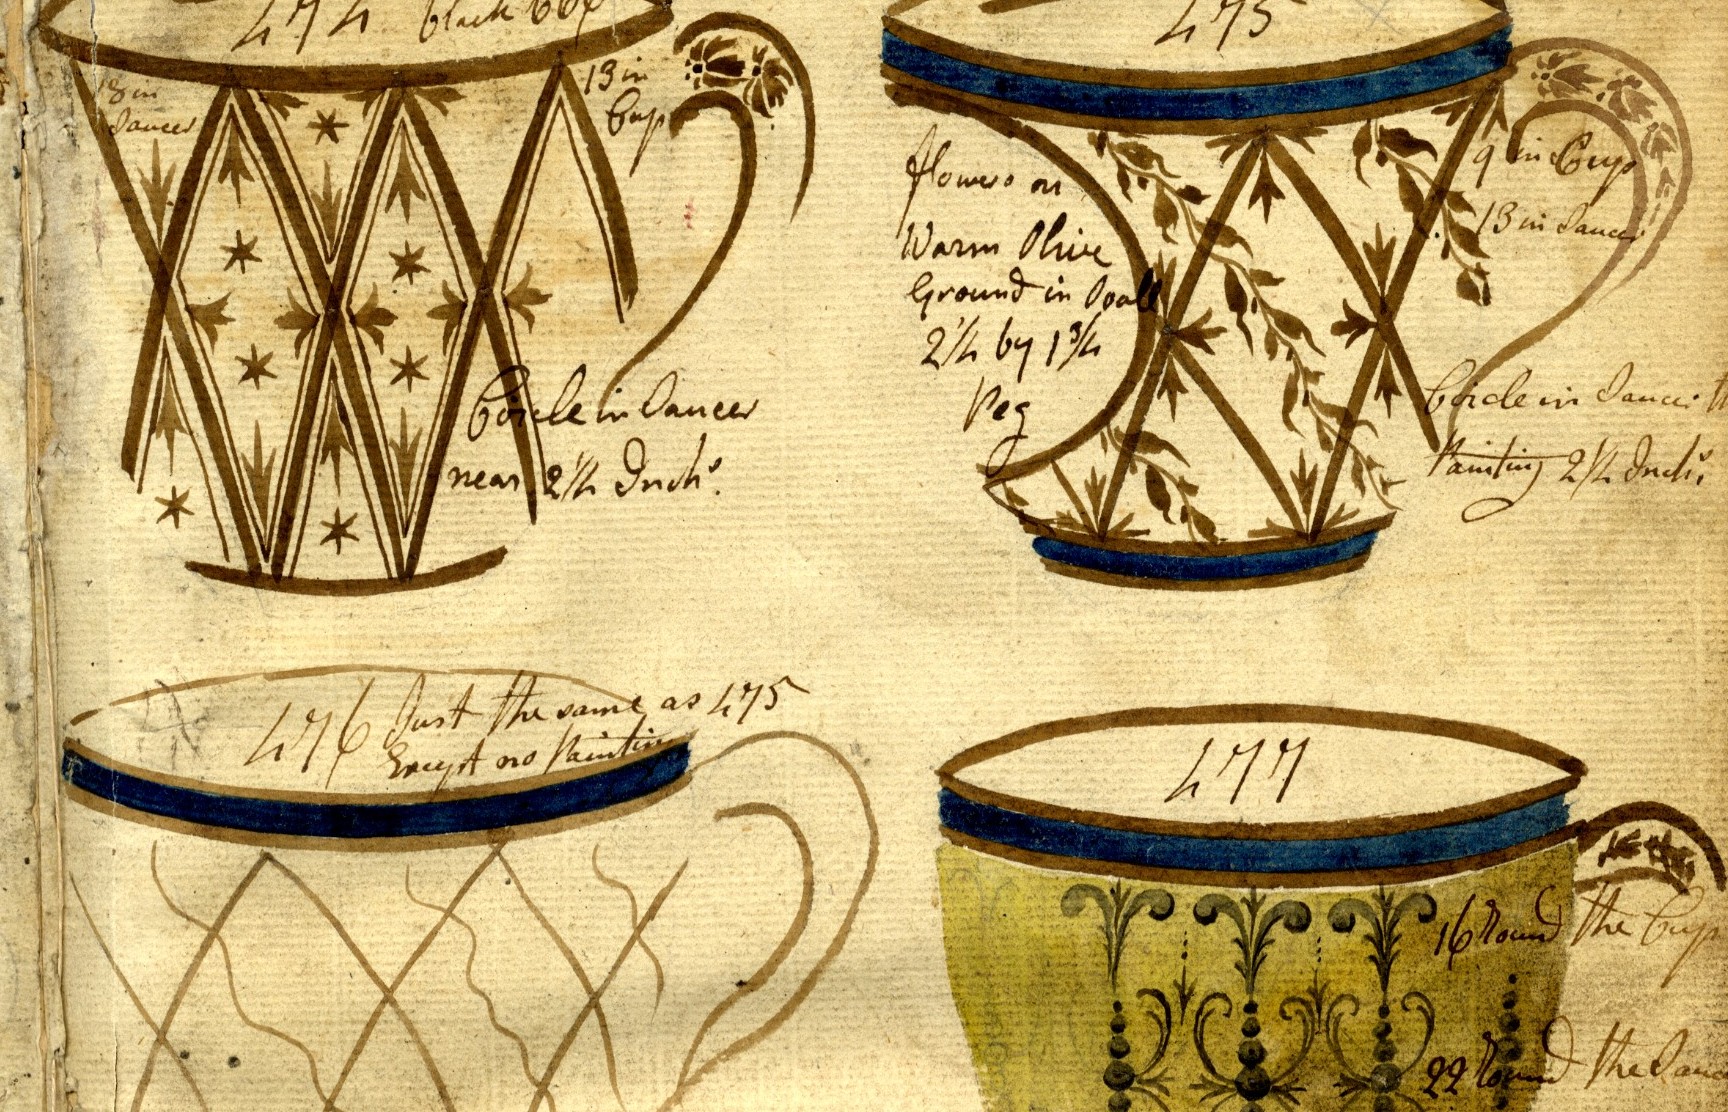 474 black
13 in
Saucer
13 in
Cup
Circle in Saucer
near 2 1/4 Inchs.
475
flowers on
Warm Olive
Ground in Ovall
2 1/4 by 1 3/4
Peg
9 in Cup
13 in Saucer
Circle in Saucer
Painting 2 1/4 Inchs.
476 Just the same as 475
Except no Painting
477
16 Round the Cup
22 Round the Sauc